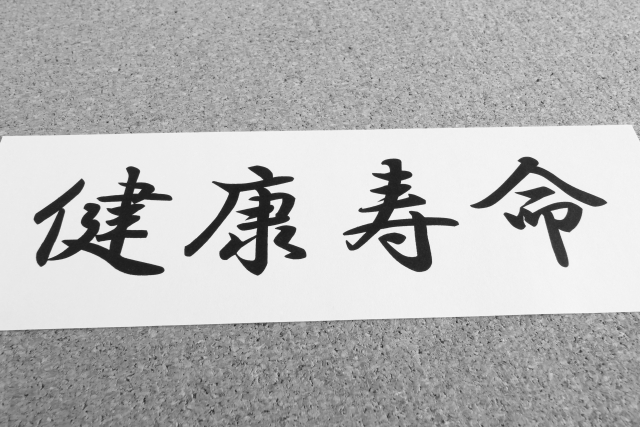 健康寿命